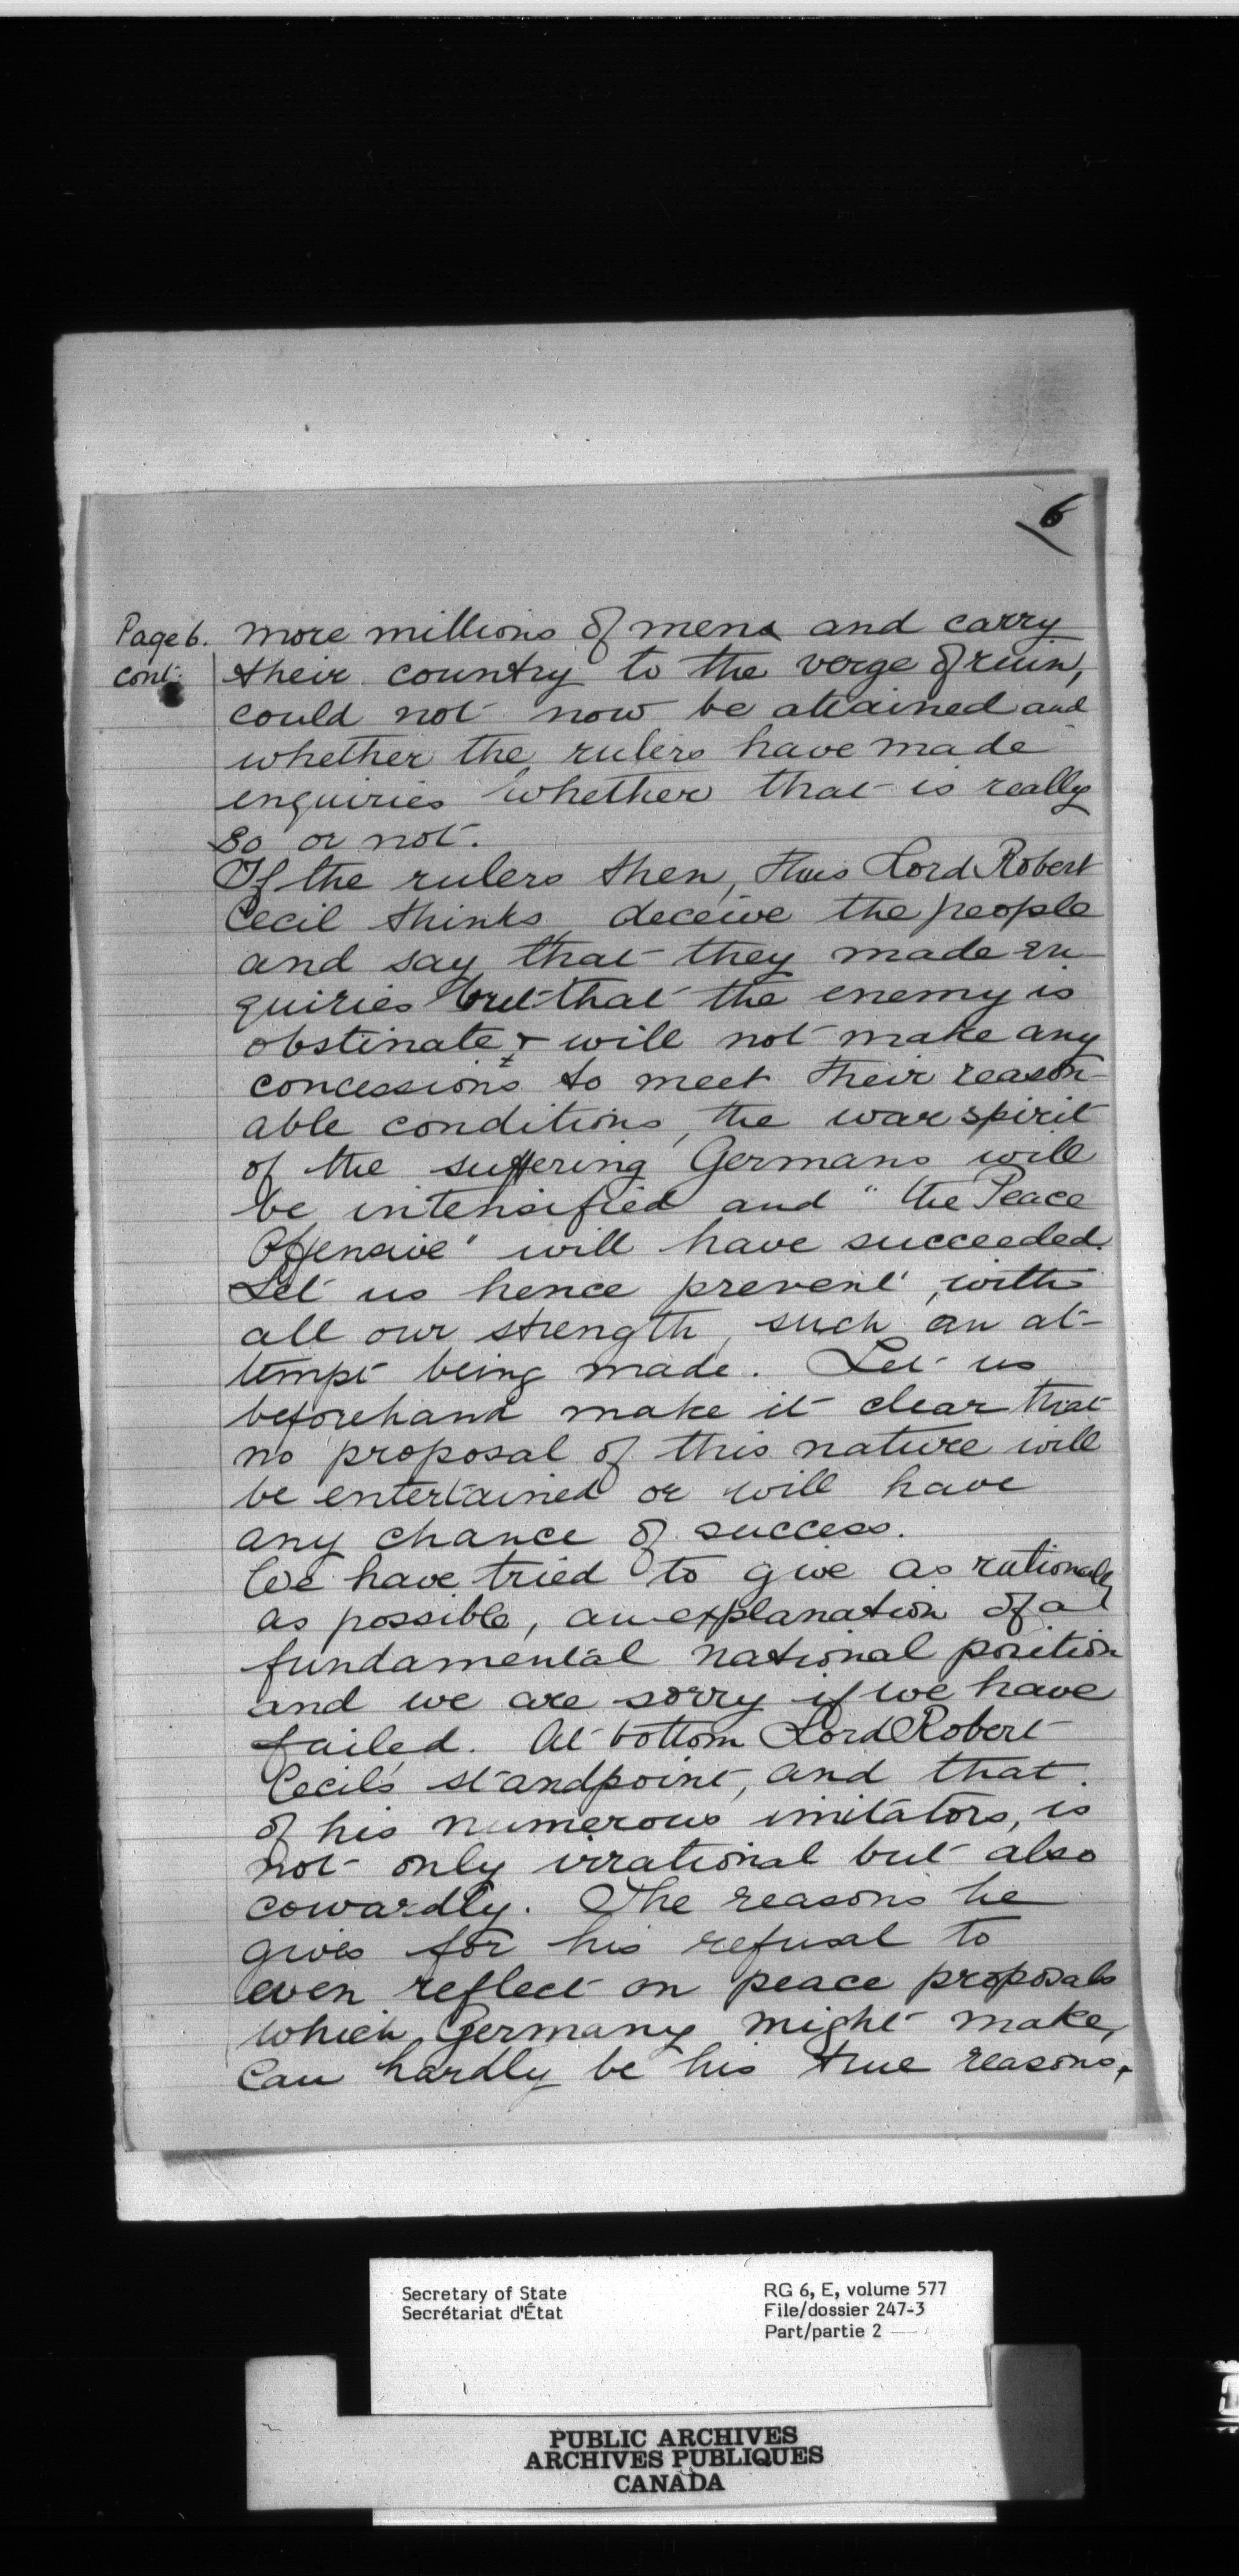 6
Page 6. more millions of mens and carry
cont. their country to the verge of ruin,
could not now be attained and
whether the rulers have made
enquiries whether that is really
so or not.
If the rulers then, thus Lord Robert
Cecil thinks, deceive the people
and say that they made en-
quiries but that the enemy is
obstinate & will not make any
concessions to meet their reason-
able conditions, the war spirit
of the suffering Germans will
be intensified and "the Peace
Offensive" will have succeeded.
Let us hence prevent, with
all our strength, such an at-
tempt being made. Let us
beforehand make it clear that
no proposal of this nature will
be entertained or will have
any chance of success.
We have tried to give as rationally
as possible, an explanation of a
fundamental national position
and we are sorry if we have
failed. At bottom Lord Robert
Cecil's standpoint, and that
of his numerous imitators, is
not only irrational but also
cowardly. The reasons he
gives for his refusal to
even reflect on peace proposals
which Germany might make,
can hardly be his true reasons,
Secretary of State
Secrétariat d'État
RG 6, E, volume 577
File/dossier 247-3
Part/partie 2
PUBLIC ARCHIVES
ARCHIVES PUBLIQUES
CANADA